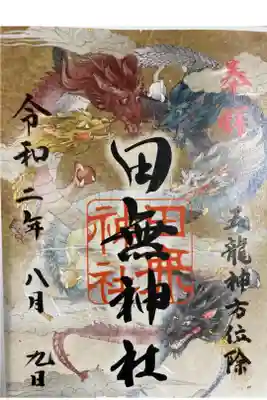 奉拝
五龍神方位除
田無神社
田無神社
令和二年八月九日